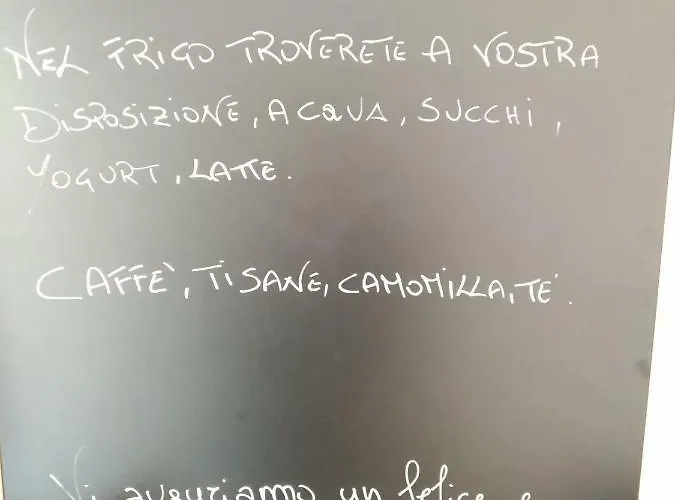 NEL FRIGO TROVERETE A VOSTRA
DISPOSIZIONE, ACQUA, SUCCHI,
YOGURT, LATTE.
CAFFÈ, TISANE, CAMOMILLA, TE'.
Vi auguriamo un felice e